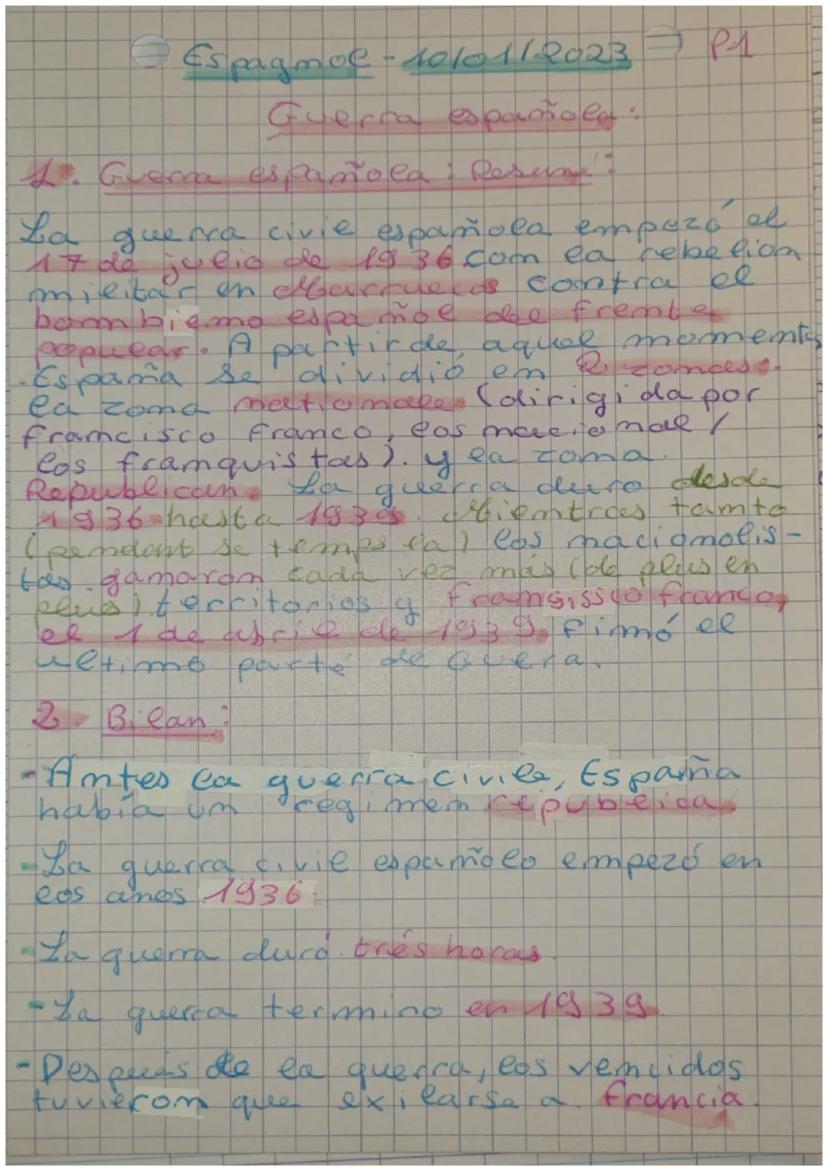 Espagnol - 10/01/2023 P1
Guerra española :
1. Guerra española : Resumé :
La guerra civil española empezó el
17 de julio de 1936 con la rebelion
militar en Marruecos contra el
bombierno español de frente
popular. A partir de aquel momento
España se dividió en 2 zonas.
la zona nationale (dirigida por
francisco franco, los nacional /
los franquistas). y la zona
Republican. La guerra duro desde
1936 hasta 1939. Mientras tanto
(pendant se temps la) los nacionolis-
tas gamaron cada vez más (de plus en
plus) territorios y fransissco franco,
el 1 de abril de 1939, firmó el
ultimo parte de Guera.
2. Bilan :
- Antes la guerra civile, España
había un regimen republica.
- La guerra civil españolo empezó en
los anos 1936.
- La guerra duró trés horas
- La guerra termino en 1939.
- Después de la guerra, los vencidos
tuvieron que exilarsa a francia.